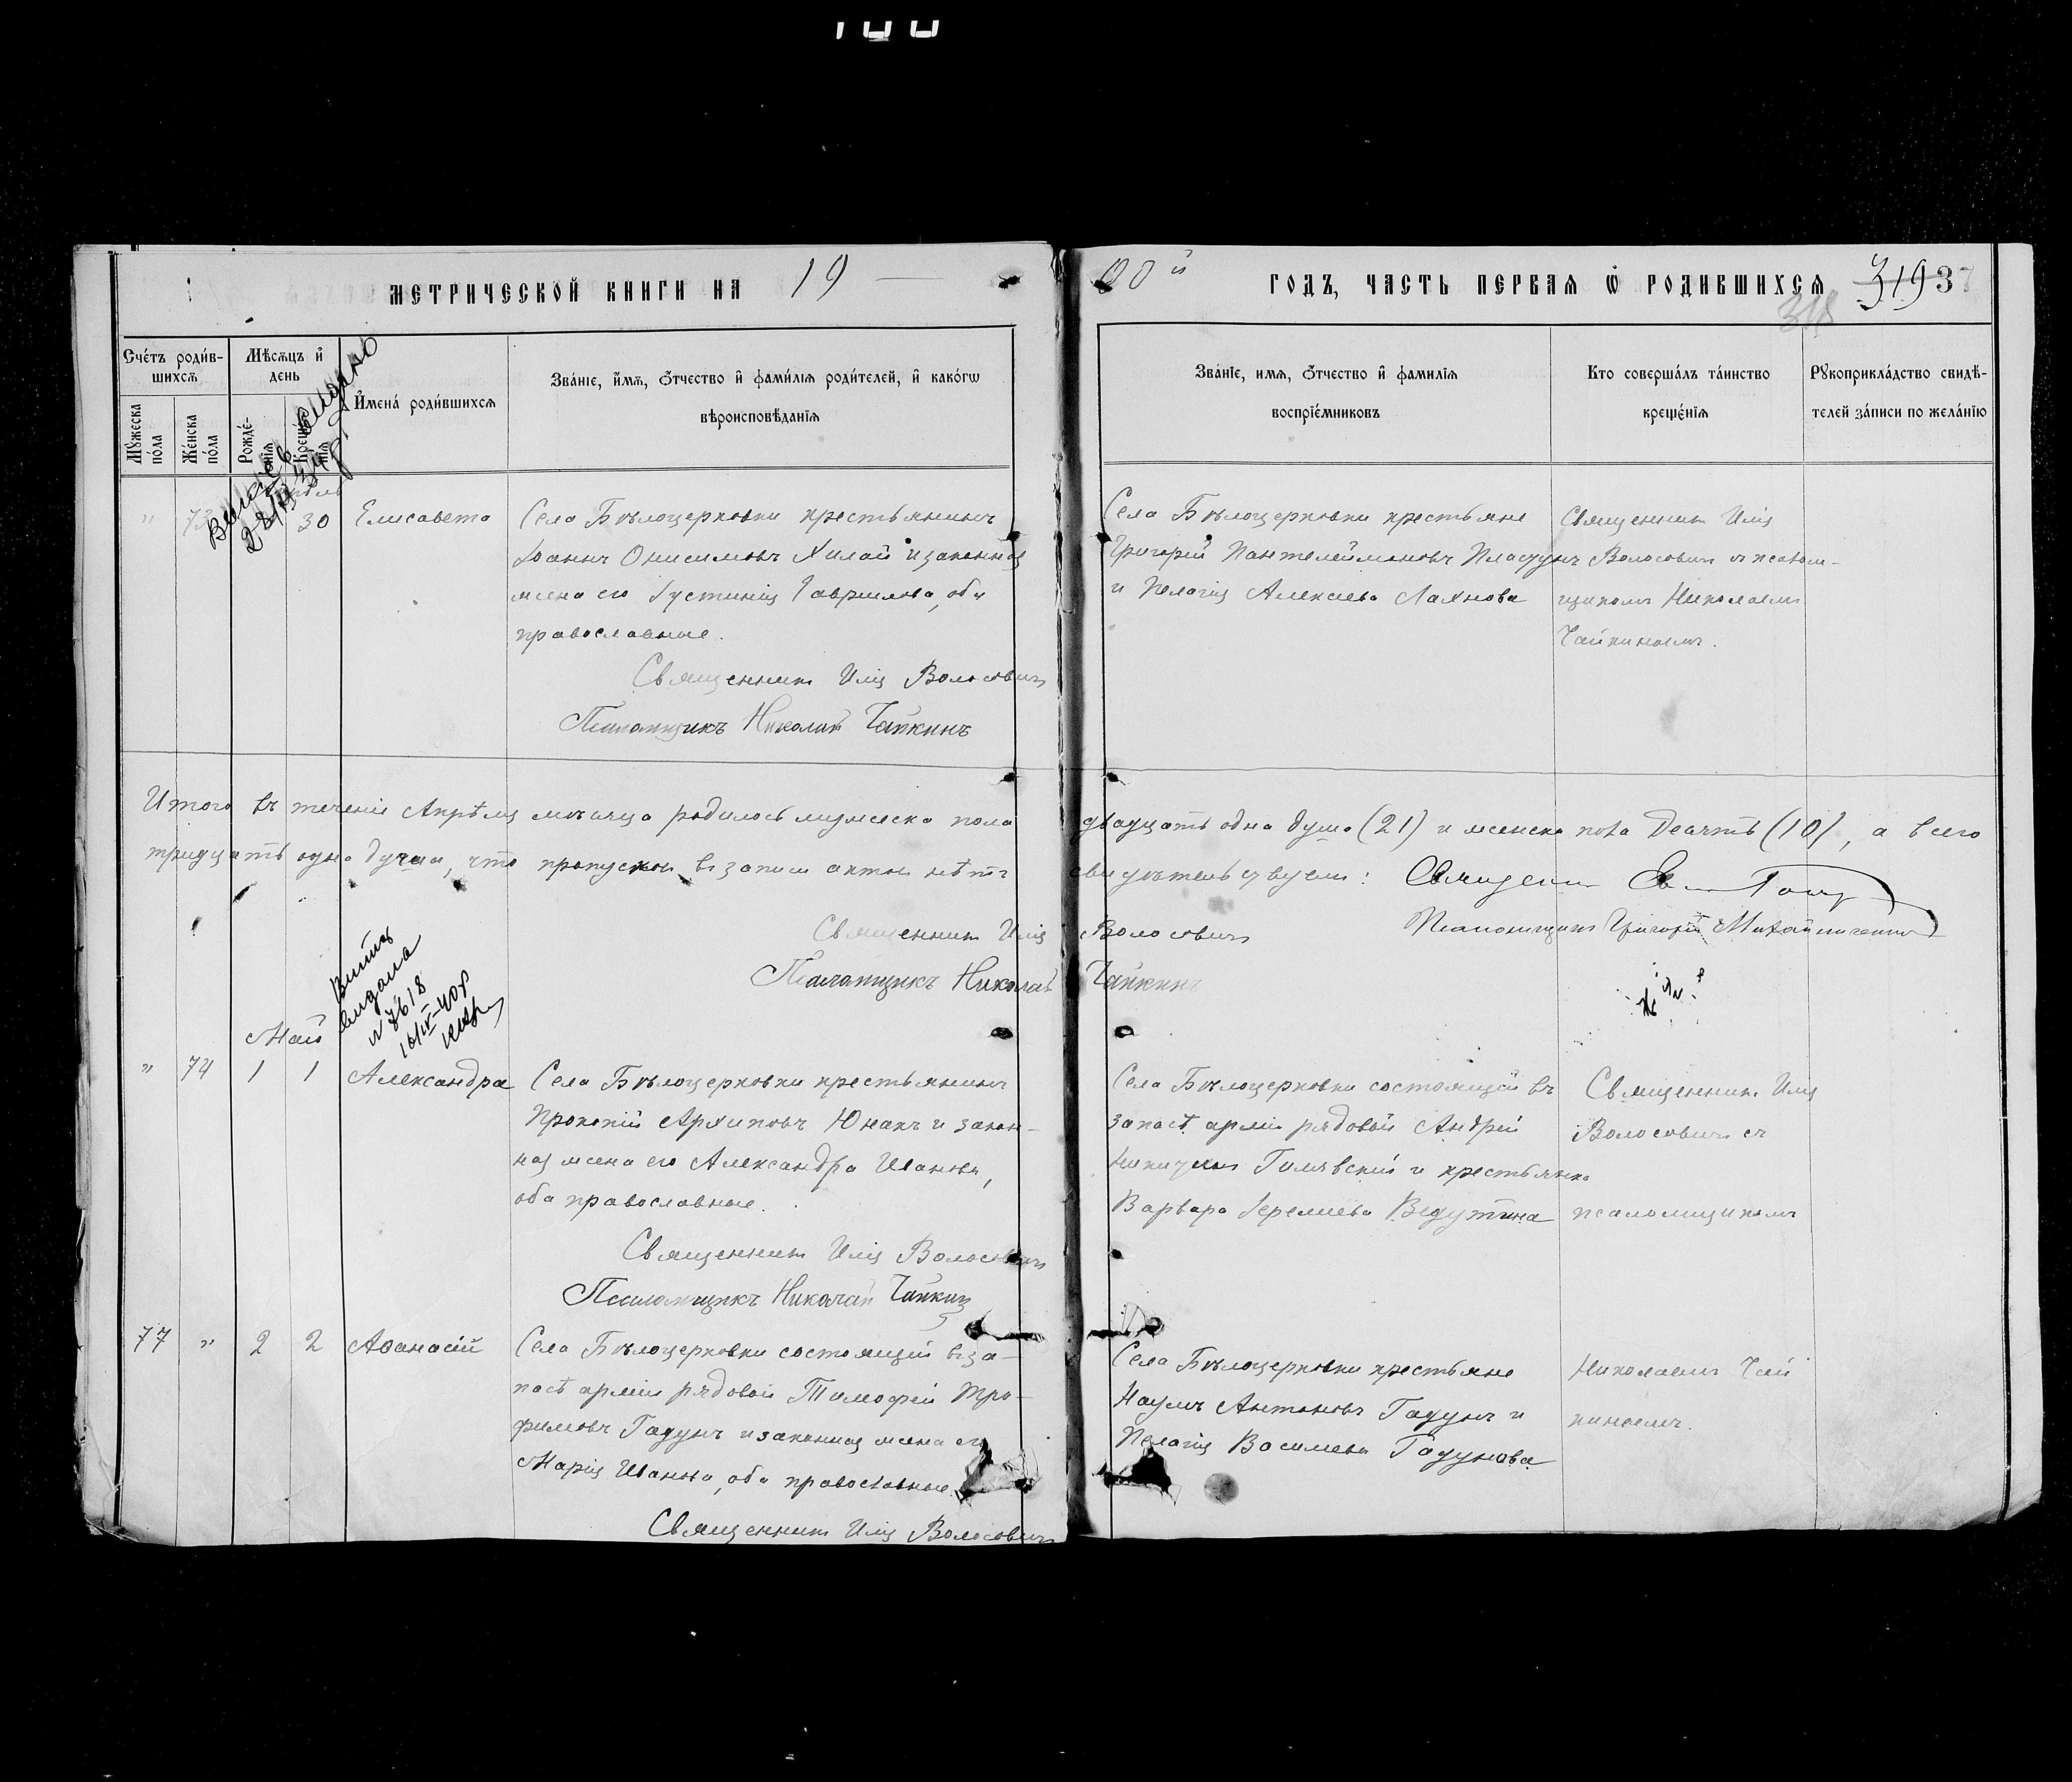 100
МЕТРИЧЕСКОЙ КНИГИ НА 19
00й ГОДЪ, ЧАСТЬ ПЕРВАЯ Ѿ РОДИВШИХСЯ 319 3
318
Счétъ роди́вшихсѧ
Мѣ́сѧцъ и҆ день
И҆мена́ роди́вшихсѧ
Зва́нїе, и҆́мѧ, ѻ҆́тчество и҆ фами́лїѧ роди́телей, и҆ како́гѡ вѣроисповѣ́данїѧ
Мꙋ́жеска по́ла
Же́нска по́ла
Рожде́нїѧ
Креще́нїѧ
Зва́нїе, имѧ, ѻ҆́тчество и҆ фамилїѧ воспрїе́мниковъ
Кто соверша́лъ та́инство креще́нїѧ
Рꙋкоприкла́дство свидѣ́телей за́писи по жела́нїю
выдано
" 73 30 Елисавета
Села Бѣлоцерковки крестьянинъ
Іоаннъ Онисимовъ Хилай и законная
жена его Іустинія Гаврилова, оба
православные.
Священникъ Илія Волосовичъ
Псаломщикъ Николай Чайкинъ
Села Бѣлоцерковки крестьяне
Григорій Пантелеймоновъ Пластунъ
и Пелагія Алексѣева Лахнова
Священникъ Илія
Волосовичъ съ псалом-
щикомъ Николаемъ
Чайкинымъ.
Итого въ теченіи Апрѣля мѣсяца родилось мужеска пола двадцать одна душа (21) и женска пола десять (10), а всего
тридцать одна душа, что пропусковъ въ записи актовъ нѣтъ свидѣтельствуемъ: Священникъ
Священникъ Илія Волосовичъ
Псаломщикъ Григорій
Псаломщикъ Николай Чайкинъ
выдана
№ 7618
16/IV-40р
Май
" 74 1 1 Александра
Села Бѣлоцерковки крестьянинъ
Прокопій Архиповъ Юнакъ и закон-
ная жена его Александра Иванова,
оба православные.
Священникъ Илія Волосовичъ
Псаломщикъ Николай Чайкинъ
Села Бѣлоцерковки состоящій въ
запасѣ арміи рядовой Андрей
и крестьянка
Варвара Іереміева Ведутина
Священникъ Илія
Волосовичъ съ
псаломщикомъ
77 " 2 2 Аѳанасій
Села Бѣлоцерковки состоящій въ за-
пасѣ арміи рядовой Тимофей Тро-
фимовъ Гадунъ и законная жена его
Марія Иванова, оба православные.
Священникъ Илія Волосовичъ
Села Бѣлоцерковки крестьяне
Наумъ Антоновъ Гадунъ и
Пелагія Васильева Гадунова
Николаемъ Чай
кинымъ.